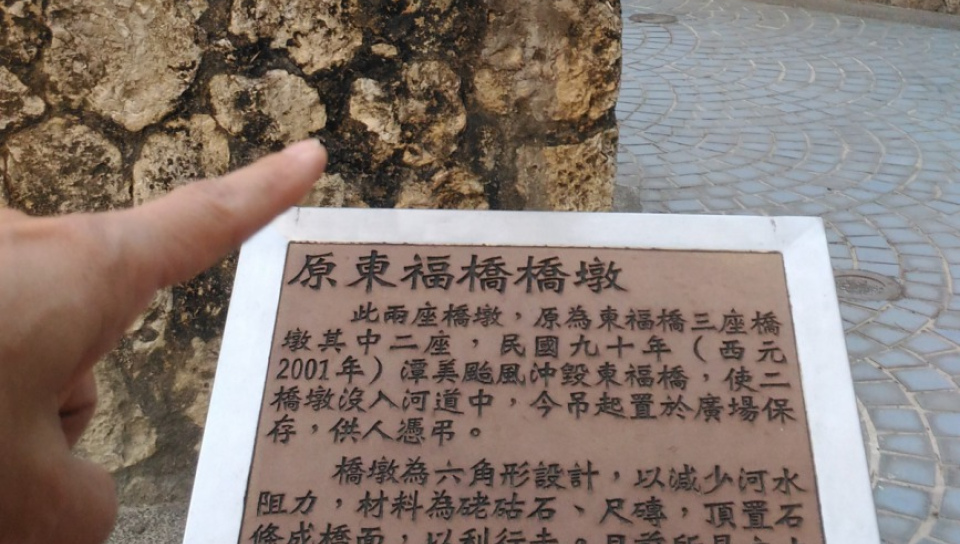 原東福橋橋墩
此兩座橋墩，原為東福橋三座橋
墩其中二座，民國九十年（西元
2001年）潭美颱風沖毀東福橋，使二
橋墩沒入河道中，今吊起置於廣場保
存，供人憑弔。
橋墩為六角形設計，以減少河水
阻力，材料為硓𥑮石、尺磚，頂置石
條成橋面，以利行走。目前所見之